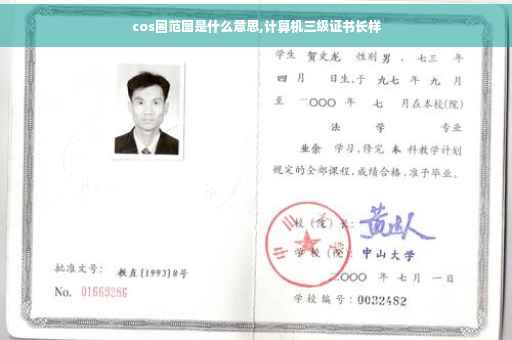 cos图范围是什么意思,计算机三级证书长样
学生 贺文龙 性别 男 、七三 年
四 月 日生,于 九七 年 九 月
至 二〇〇〇 年 七 月在本校(院)
法 学 专业
业余 学习,修完 本 科教学计划
规定的全部课程,成绩合格,准予毕业。
校(院)长:
学校(院): 中山大学
二〇〇〇 年 七 月 一 日
学校编号: 0032482
批准文号: 教直[1993]8号
No. 01669286